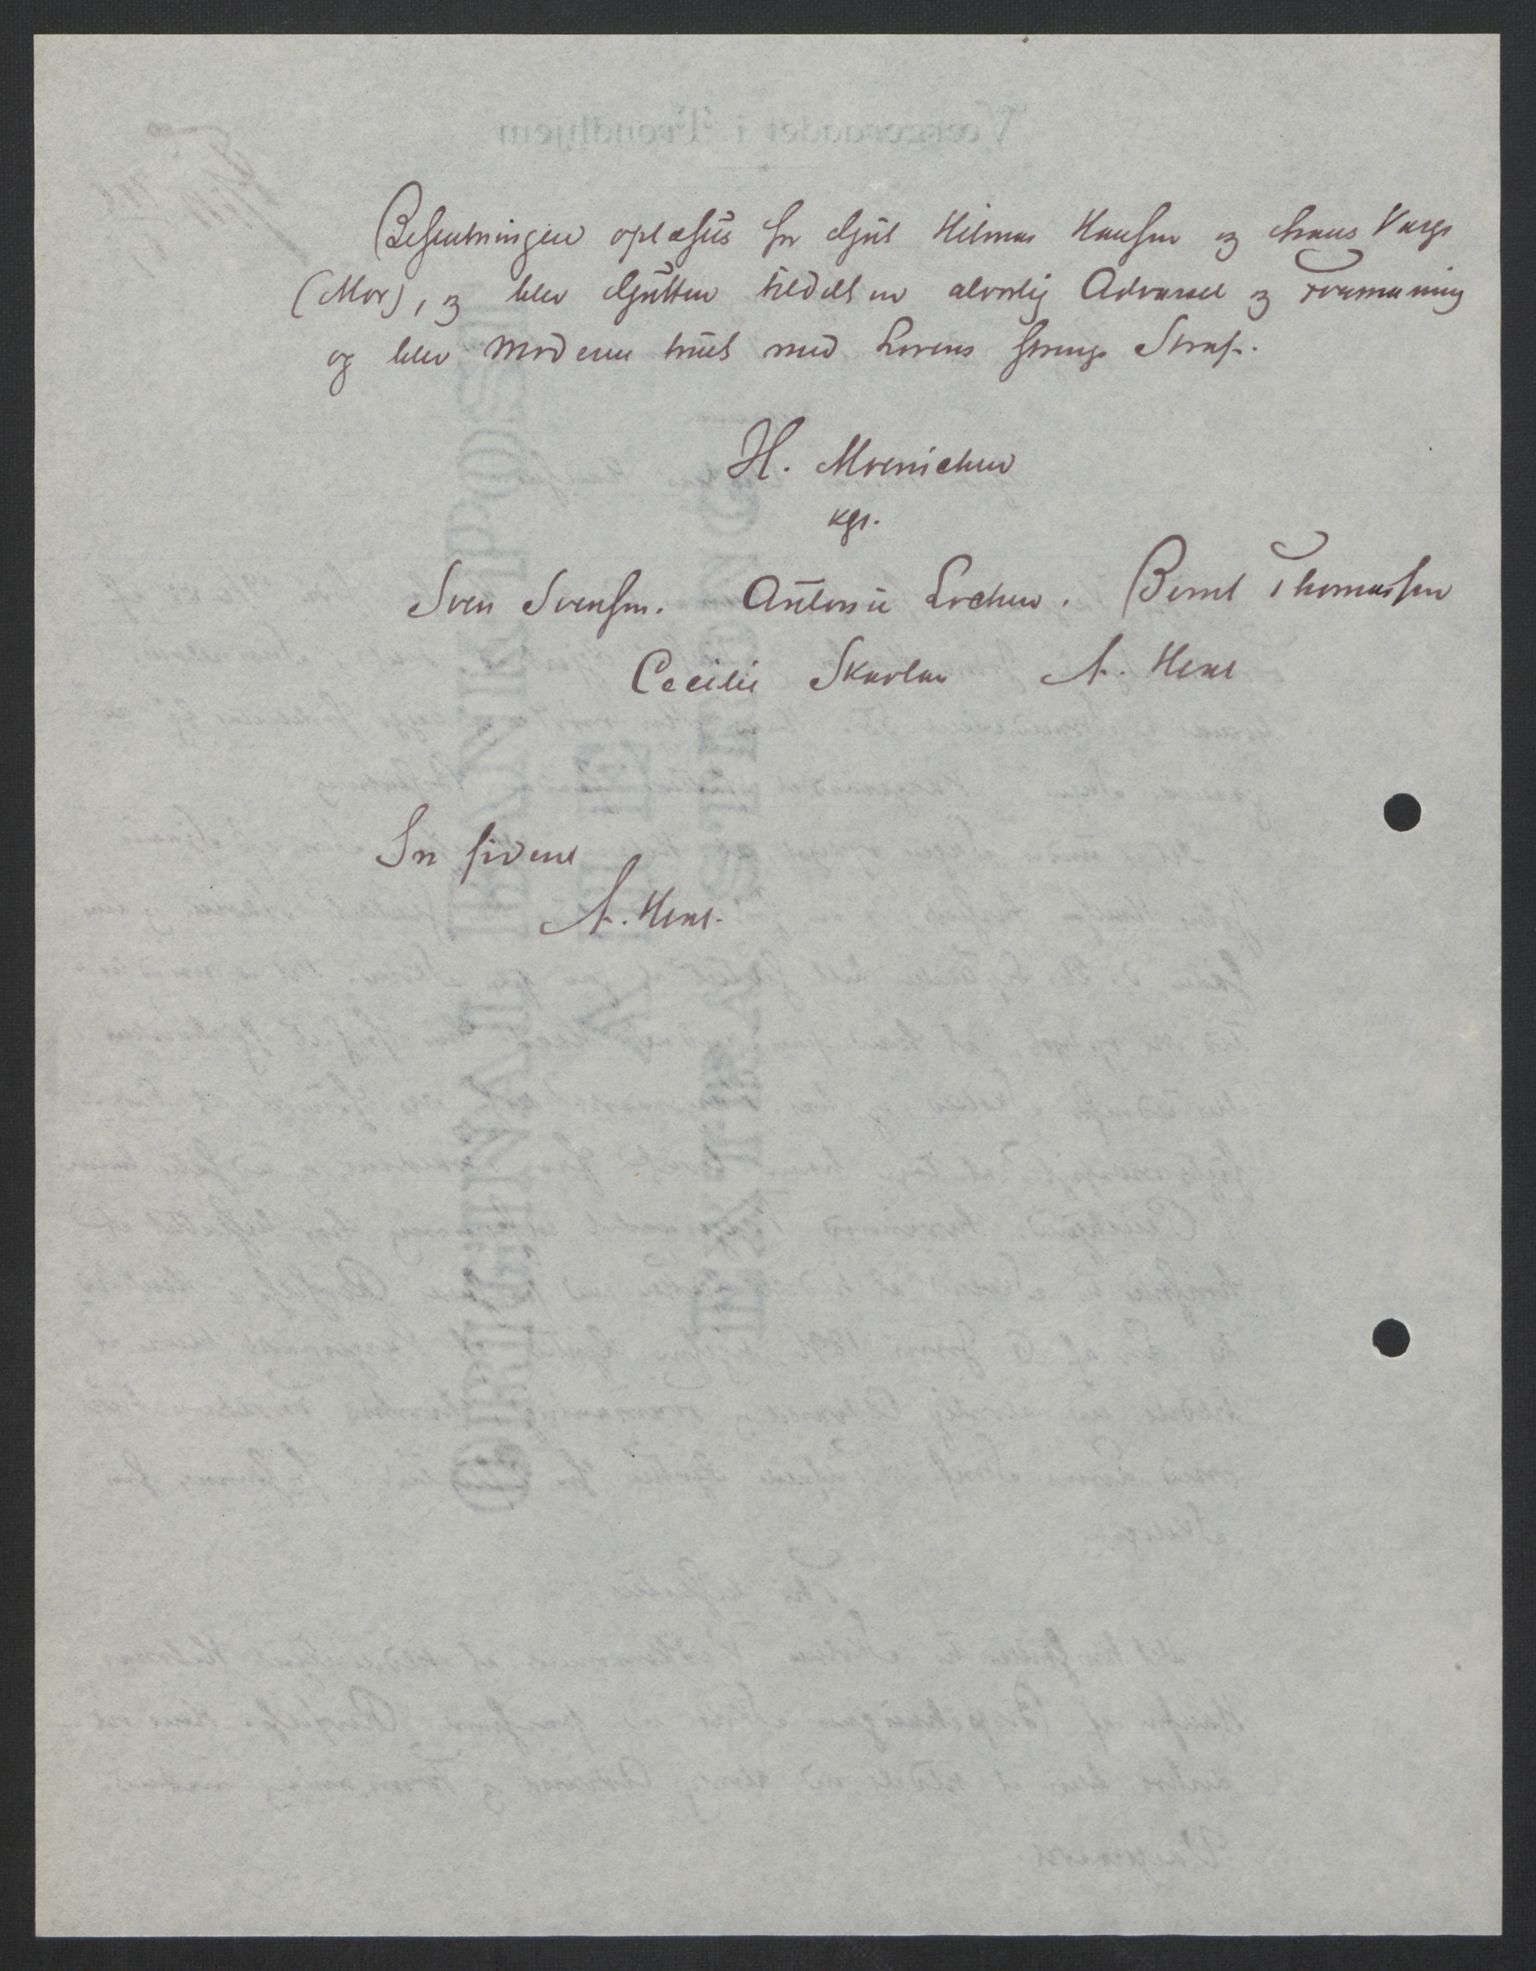 Beslutningen oplæstes for Gjut Hilmar Hansen og hans Værge
(Mor), og blev Gutten tildelt en alvorlig Advarsel og Formaning
og blev Moderen truet med Lovens strenge Straf.
H. Moenichen
kgr.
Sven Svensen. Antonie Lochen. Bernt Thomassen
Cecilie Skavlan A. Hexe
In fidem
A. Hexe.